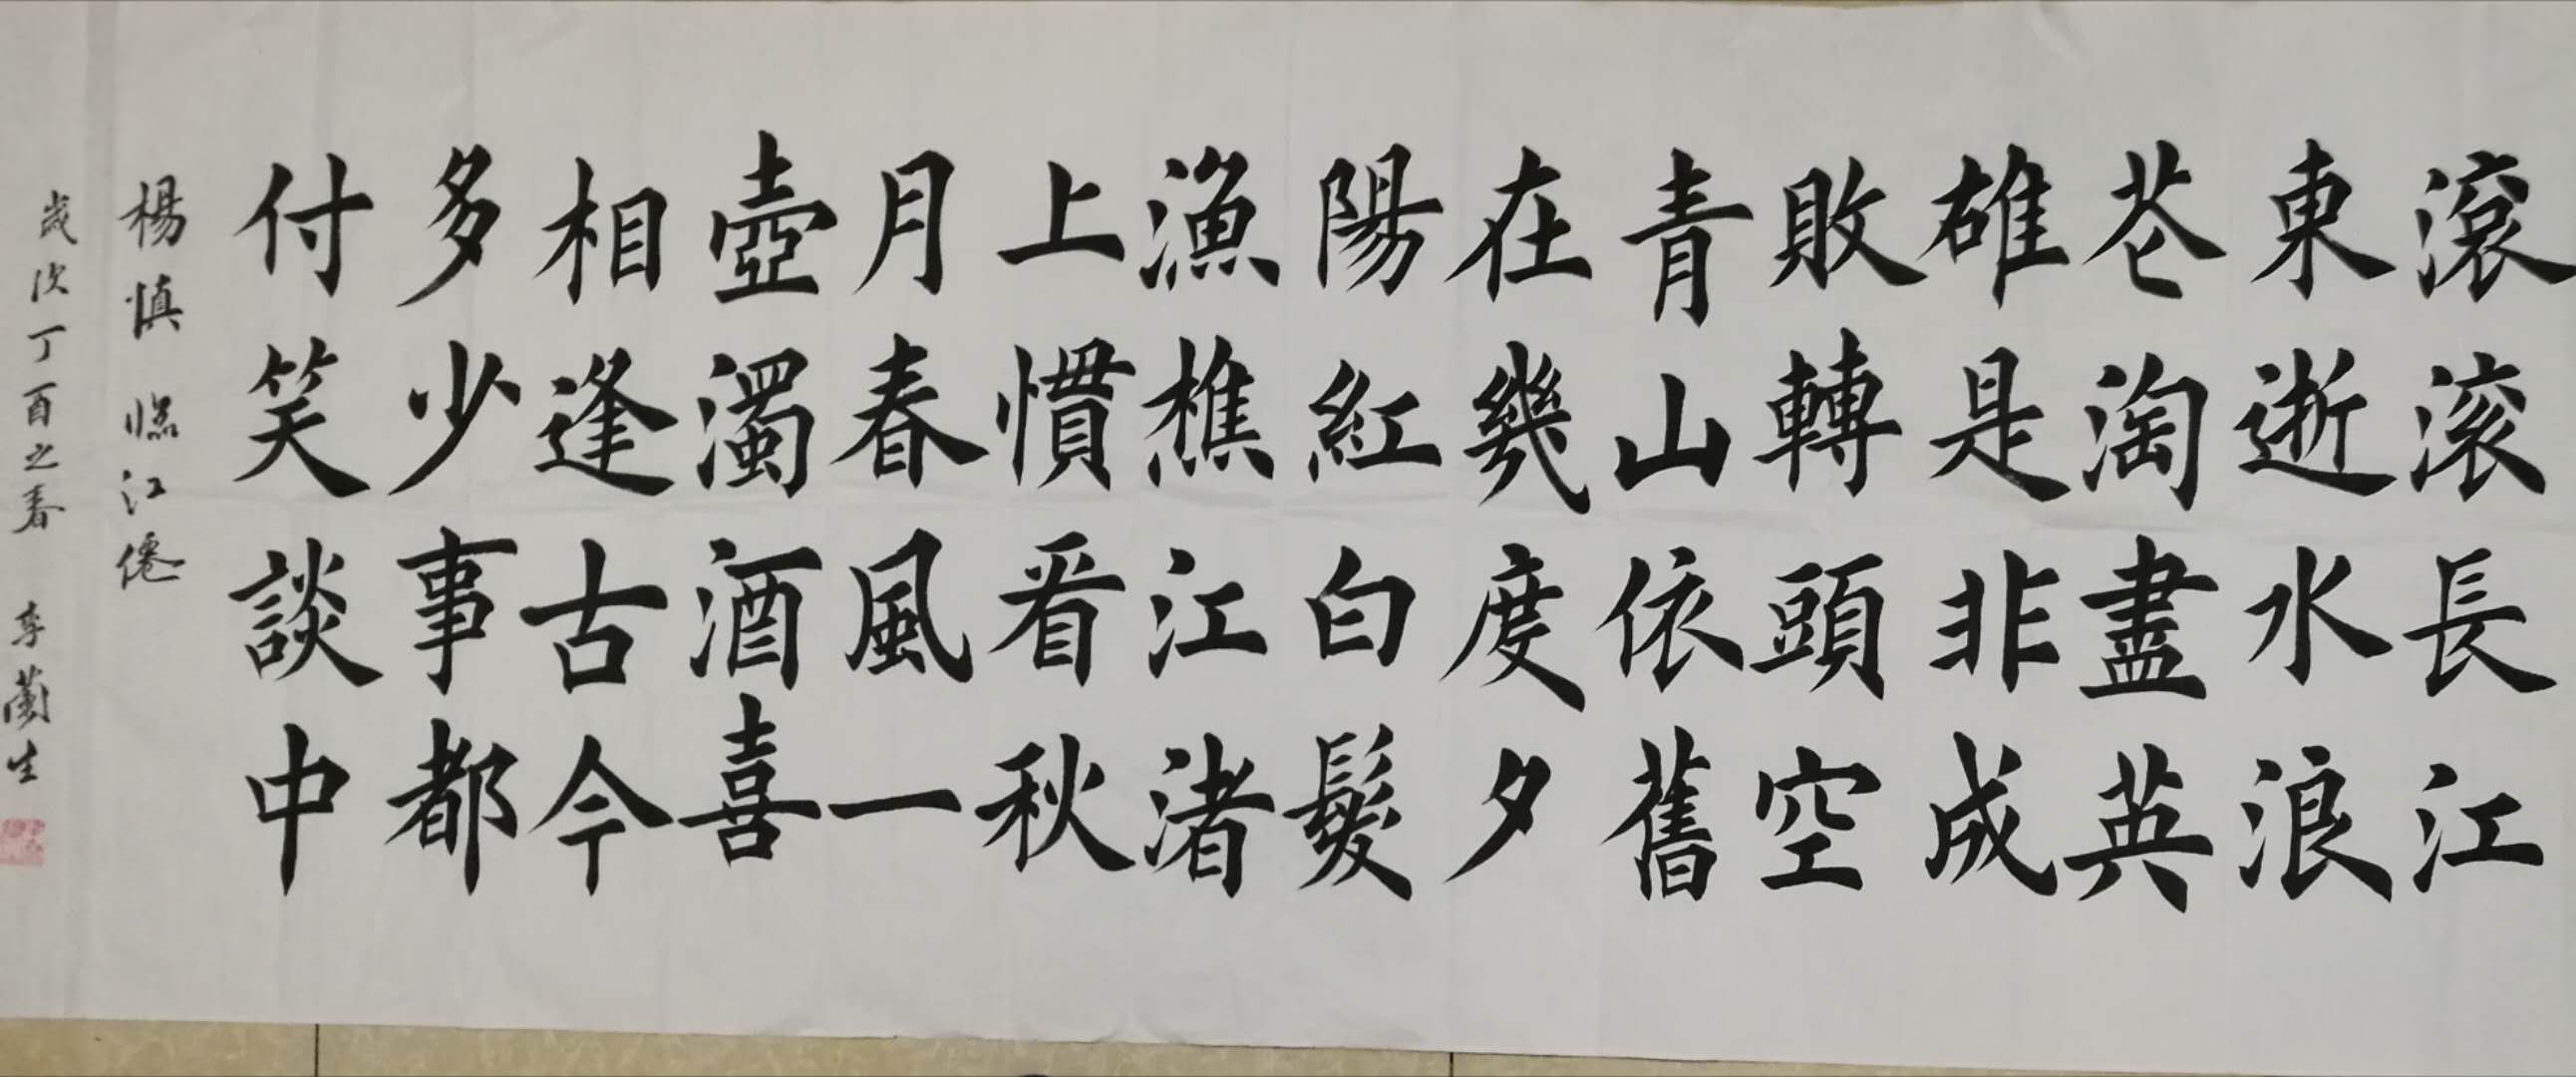 滾滚長江
東逝水浪
花淘盡英
雄是非成
敗轉頭空
青山依舊
在幾度夕
陽紅白髮
漁樵江渚
上慣看秋
月春風一
壺濁酒喜
相逢古今
多少事都
付笑談中
楊慎臨江僊
歲次丁酉之春 李蘭生